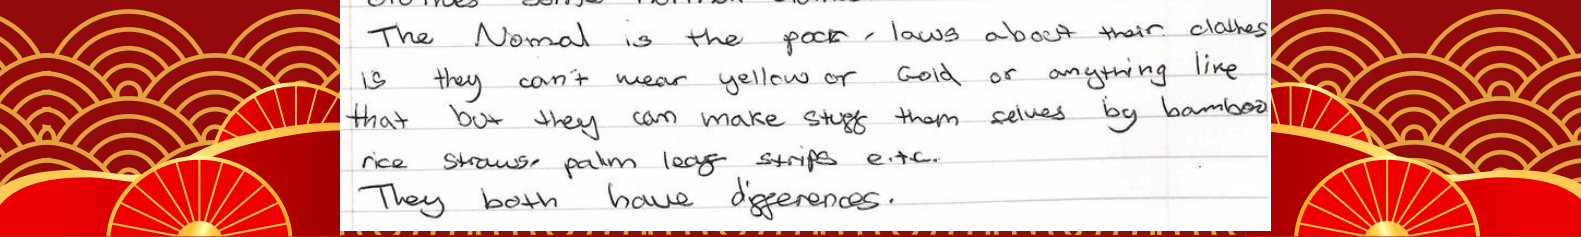 The Nomal is the poor, laws about their clothes
is they can't wear yellow or Gold or anything like
that but they can make stuff them selves by bamboo
rice straws, palm leaf strips e.t.c.
They both have differences.